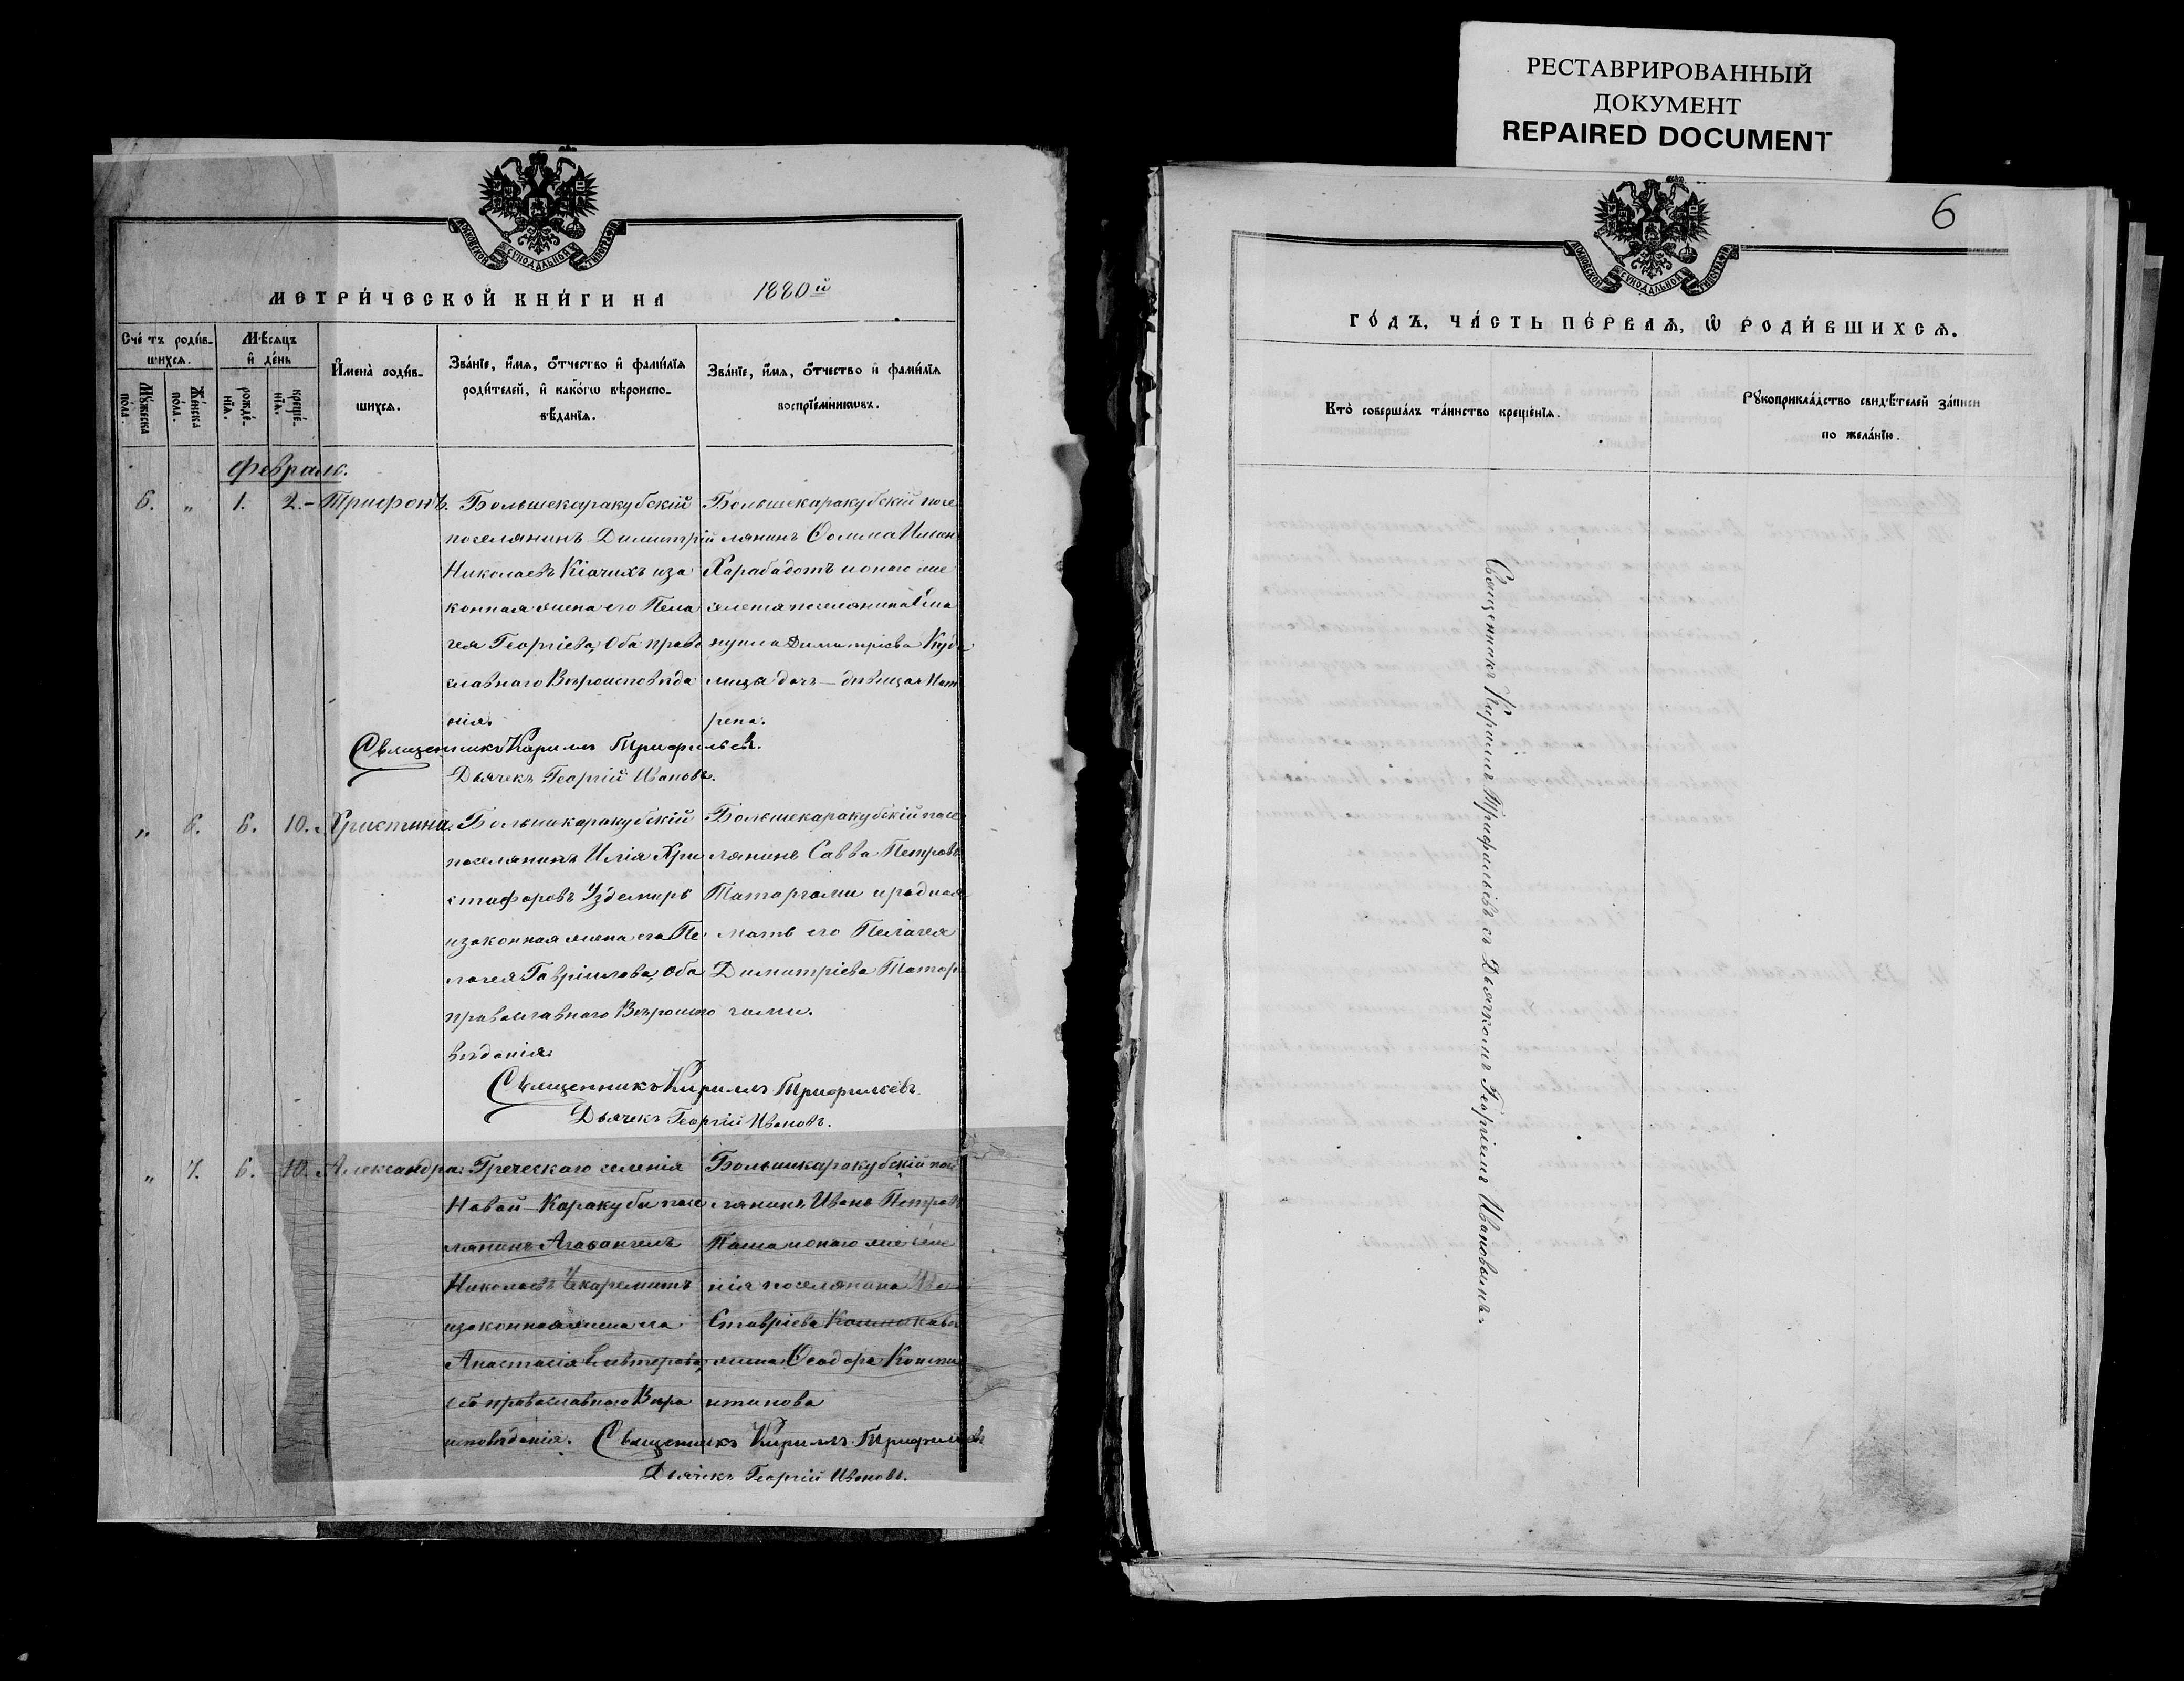 РЕСТАВРИРОВАННЫЙ
ДОКУМЕНТ
REPAIRED DOCUMENT
МОСКОВСКОЙ СѴНОДАЛЬНОЙ ТИПОГРАФІИ
МЕТРИ́ЧЕСКОЙ КНИ́ГИ НА 1880й
Сче́тъ роди́в-
шихся.
Мѣсяцъ
и҆ де́нь
Мꙋ́жеска
по́ла.
Же́нска
по́ла.
рожде́-
нїѧ.
креще́-
нїѧ.
И҆мена̀ роди́в-
шихся.
Зва́нїе, и҆́мѧ, ѻ҆́тчество и҆ фами́лїѧ
роди́телей, и҆ како́гѡ вѣроиспо-
вѣ́данїѧ.
Зва́нїе, и҆́мѧ, ѻ҆́тчество и҆ фами́лїѧ
воспрїе́мникѡвъ.
Февраль.
6. „ 1. 2.- Трифонъ.
Большекаракубскій
поселянинъ Димитрій
Николаевъ Кіачихъ и за
конная жена его Пела
гея Георгіева, Оба право
славнаго Вѣроисповѣда
нія.
Большекаракубскій посе
лянинъ Ѳома
Харабадотъ и онаго же
поселянина
Димитріева
дочь - дѣвица Мат
рена.
Священникъ Кирилъ Трифильевъ.
Дьячекъ Георгій Ивановъ.
„ 6. 6. 10. Христина.
Большекаракубскій
поселянинъ Илія Хри
стофоровъ Уздемиръ
и законная жена его Пе
лагея Гавріилова, Оба
православнаго Вѣроиспо
вѣданія.
Большекаракубскій посе
лянинъ Савва Петровъ
Татаргами и родная
мать его Пелагея
Димитріева Татар
гами.
Священникъ Кирилъ Трифильевъ.
Дьячекъ Георгій Ивановъ.
„ 7. 6. 10. Александра.
Греческаго селенія
Новой-Каракубы посе
лянинъ Агаѳангелъ
Николаевъ Чекареметъ
и законная жена его
Анастасія Елевтерова,
оба православнаго Вѣро
исповѣданія.
Большекаракубскій посе
лянинъ Иванъ Петровъ
Паша и онаго же селе
нія поселянина
Ставріева
жена Ѳеодора Конста
нтинова
Священникъ Кирилъ Трифильевъ
Дьячекъ Георгій Ивановъ.
6
МОСКОВСКОЙ СѴНОДАЛЬНОЙ ТИПОГРАФІИ
ГО́ДЪ, ЧА́СТЬ ПЕ́РВАѦ, Ѽ РОДИ́ВШИХСѦ.
Кто̀ соверша́лъ та́инство креще́нїѧ.
Рꙋкоприкла́дство свидѣ́телей за́писи
по жела́нїю.
Священникъ Кирилъ Трифильевъ съ Дьячкомъ Георгіемъ Ивановымъ.